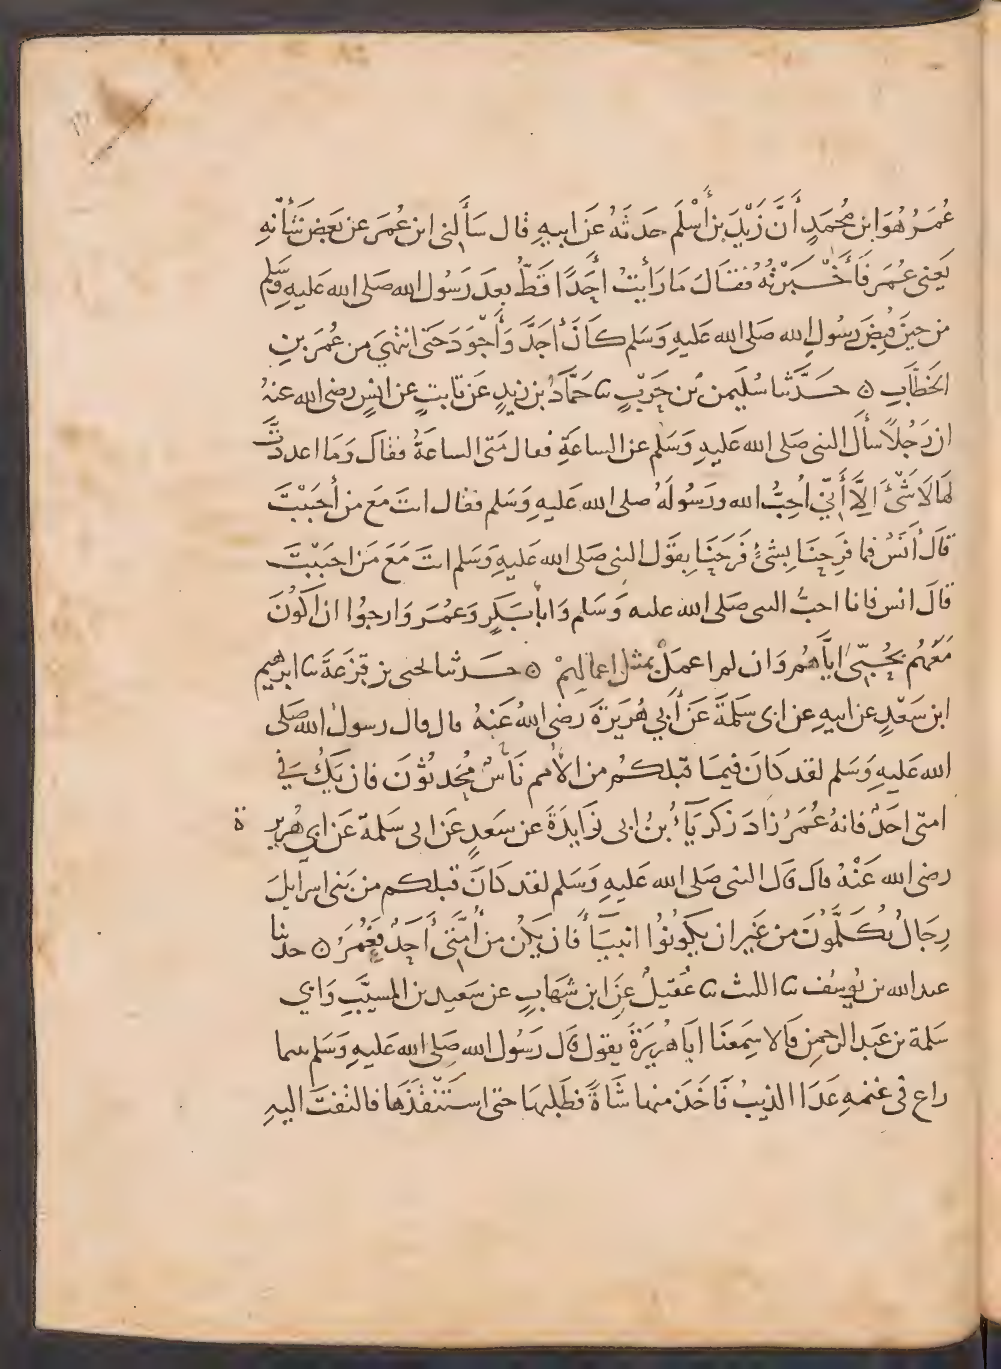 عُمَرُ هُوَ ابن مُحمَدٍ أَنَّ زَيْدَ بنَ أَسْلَمَ حَدثَهُ عَن ابيهِ قال سَأَلني ابن عُمَرَ عن بَعضِ شَأنِهِ
يَعني عُمَرَ فَأَخْبَرْتُهُ فَقَالَ مَا رَأيتُ أحَدًا قَطُّ بعدَ رَسُول الله صَلى الله عَليهِ وَسَلم
من حينَ قُبِضَ رسُول الله صَلى الله عَليهِ وَسَلم كانَ أجَدَّ وَأَجْوَدَ حَتى انتهي من عُمَرَ بنِ
الخطَّابِ ه حَدَّثنا سُليمن بن حَرْبٍ نا حَمَّادُ بن زيدٍ عَن ثابتٍ عن انسٍ رضى الله عنهُ
ان رَجُلاً سأل النبى صَلى الله عَليهِ وَسَلم عن الساعَةِ فعال مَتى الساعَةُ فقال وَمَا اعددتَّ
لهَا لَا شَيْئَ اِلَّا أَنّي أُحِبُّ الله ورَسُولَهُ صلى الله عَليهِ وَسَلم فقال انتَ مَعَ من أَحبَبْتَ
قَالَ أنَسٌ فما فَرِحنَا بِشئٍ فَرَحَنَا بِقَول النبى صَلى الله عَليهِ وَسَلم انتَ مَعَ مَن احبَبْتَ
قالَ انس فانا احبُّ النبى صَلى الله عليه وَسَلم وَابَا بَكرٍ وَعُمَرَ وَارجُوا ان اكُونَ
مَعَهُم بحُبّي اِيَّاهُم وَان لم اعمَلْ بمثل اعمالِهِمْ ه حَدثنا يحيى بن قزَعَةَ نا ابرهيم
ابن سَعْدٍ عن ابيهِ عن ابى سَلمَةَ عَن أَبي هُرَيرَةَ رضى اللهُ عَنهُ قال قال رسول الله صَلى
الله عَليهِ وَسَلم لقد كَانَ فيمَا قبلكُم من الأُمم نَاسٌ مُحَدثونَ فان يَكُ في
امتى احَدٌ فانهُ عُمَرُ زادَ زكريَّآءُ بنُ ابى زَايدَةَ عن سَعدٍ عَن ابى سَلمَة عَن ابي هُرير ة
رضى الله عَنْهُ قال قال النبى صَلى الله عَليهِ وَسَلم لقد كَانَ قبلكم من بَنى اسرايلَ
رِجَالٌ يُكَلَّمُونَ من غَيرِ ان يكونُوا انبيَآءَ فان يَكُن من أُمَّتى أَحَدٌ فَعُمَرُ ه حدثنا
عبد الله بن يُوسُف نا الليث نا عُقَيلٌ عن ابن شهَابٍ عن سَعيد بن المسيَّبِ وَابي
سَلمة بن عَبد الرحمنِ قالا سَمِعنَا ابَا هُرَيرَةَ يقول قال رَسُول الله صَلى الله عَليهِ وَسَلم بينما
راعٍ فى غنمهِ عَدَا الذيبُ فَاَخَذَ منها شَاةً فطَلبهَا حتى استَنْقَذَهَا فالتفتَ اليهِ